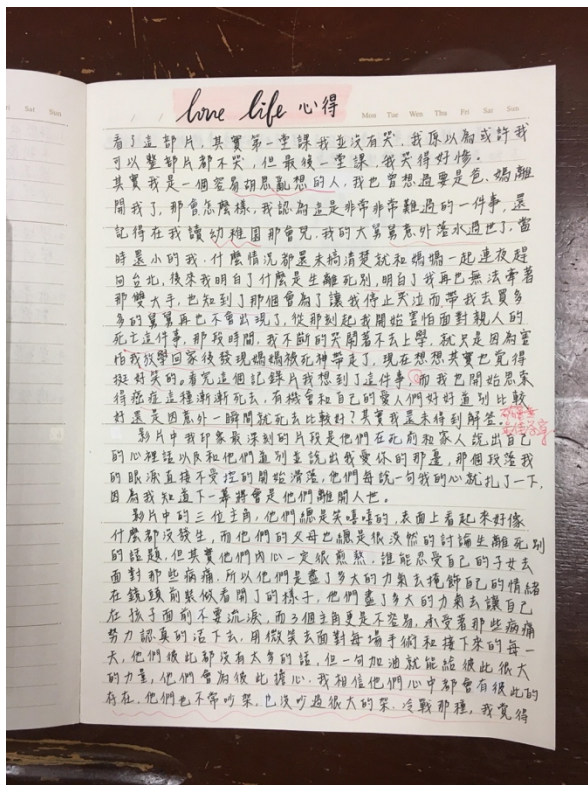 Sat Sun
love life 心得
Mon Tue Wed Thu Fri Sat Sun
看了這部片，其實第一堂課我並沒有哭，我原以為或許我
可以整部片都不哭，但最後一堂課，我哭得好慘。
其實我是一個容易胡思亂想的人，我也曾想過要是爸、媽離
開我了，那會怎麼樣，我認為這是非常非常難過的一件事，還
記得在我讀幼稚園那會兒，我的大舅舅意外落水過世了，當
時還小的我，什麼情況都還未搞清楚就和媽媽一起連夜趕
回台北，後來我明白了什麼是生離死別，明白了我再也無法牽著
那雙大手，也知到了那個會為了讓我停止哭泣而帶我去買多
多的舅舅再也不會出現了，從那刻起我開始害怕面對親人的
死亡這件事，那段時間，我不斷的哭鬧著不去上學，就只是因為害
怕我放學回家後發現媽媽被死神帶走了，現在想想其實也覺得
挺好笑的。看完這個記錄片我想到了這件事，而我也開始思索
得癌症這種漸漸死去，有機會和自己的愛人們好好道別比較
好還是因意外一瞬間就死去比較好？其實我還未得到解答。
影片中我印象最深刻的片段是他們在死前和家人說出自己
的心裡話以及和他們道別並說出我愛你的那邊，那個段落我
的眼淚直接不受控的開始滑落，他們每說一句我的心就扎了一下，
因為我知道下一幕將會是他們離開人世。
影片中的三位主角，他們總是笑嘻嘻的，表面上看起來好像
什麼都沒發生，而他們的父母也總是很淡然的討論生離死別
的話題，但其實他們內心一定很煎熬，誰能忍受自己的子女去
面對那些病痛，所以他們是盡了多大的力氣去掩飾自己的情緒
在鏡頭前裝做看開了的樣子，他們盡了多大的力氣去讓自己
在孩子面前不要流淚，而3個主角更是不容易，承受著那些病痛
努力認真的活下去，用微笑去面對每場手術和接下來的每一
天，他們彼此都沒有太多的話，但一句加油就能給彼此很大
的力量，他們會為彼此擔心，我相信他們心中都會有彼此的
存在，他們也不常吵架，也沒吵過很大的架、冷戰那種，我覺得